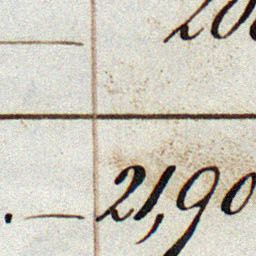 200
. — 21,90